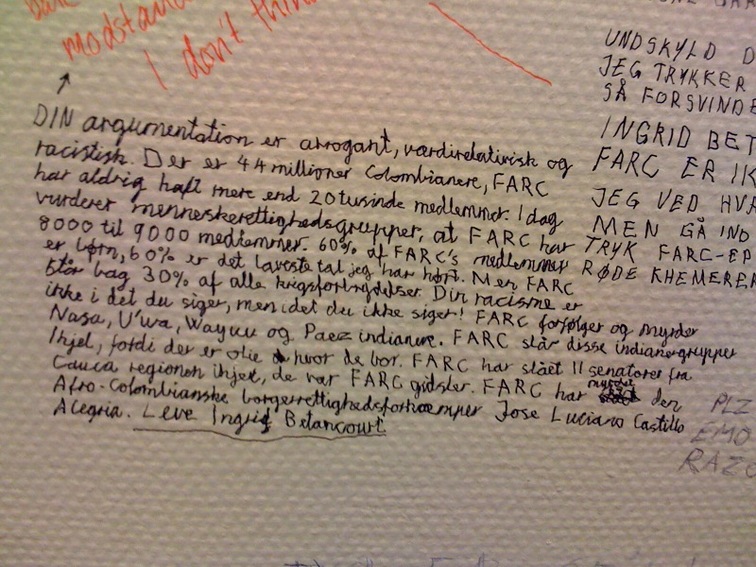 modstand
I don't thin
DIN argumentation er arrogant, værdirelativisk og
racistisk. Der er 44 millioner Colombianere, FARC
har aldrig haft mere end 20 tusinde medlemmer. I dag
vurderer menneskerettighedsgrupper, at FARC har
8000 til 9000 medlemmer. 60% af FARC's medlemmer
er børn, 60% er det laveste tal jeg har hørt. Men FARC
står bag 30% af alle krigsforbrydelser. Din racisme er
ikke i det du siger, men i det du ikke siger! FARC forfølger og myrder
Nasa, U'wa, Wayuu og Paez indianere. FARC slår disse indianergrupper
Ihjel, fordi der er olie hvor de bor. FARC har slået 11 senatorer fra
Cauca regionen ihjel, de var FARC gidsler. FARC har myrdet den
Afro-Colombianske borgerrettighedsforkæmper Jose Luciano Castillo
Alegria. Leve Ingrid Betancourt
UNDSKYLD D
JEG TRYKKER
SÅ FORSVINDE
INGRID BET
FARC ER IK
JEG VED HVA
MEN GÅ IND
TRYK FARC-EP
RØDE KHEMERER
PLZ
EMO
RAZO